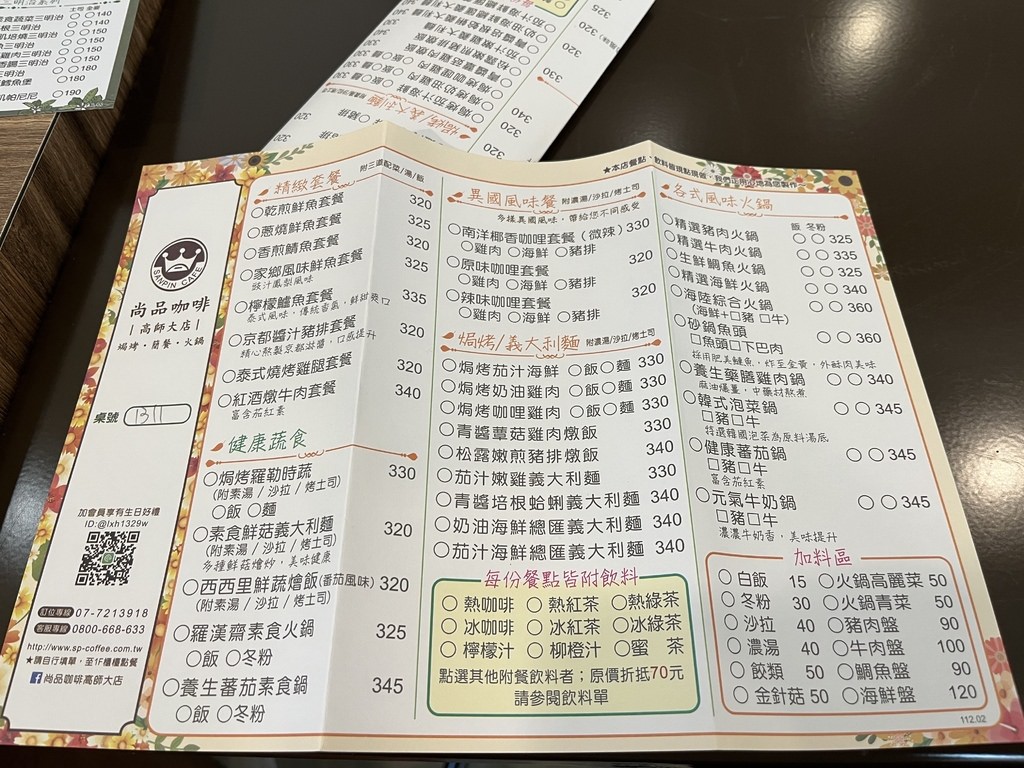 蔬菜三明治 ○○140
培根三明治 ○○140
三明治 ○○150
三明治 ○○150
雞肉三明治 ○○150
三明治 ○○180
鱈魚堡 ○180
帕尼尼 ○190
焗烤/義大利麵
SANPIN CAFE
尚品咖啡
|高師大店|
焗烤・簡餐・火鍋
桌號 1311
加會員享有生日好禮
ID:@lxh1329w
訂位專線 07-7213918
客服專線 0800-668-633
http://www.sp-coffee.com.tw
★請自行填單,至1F櫃檯點餐
尚品咖啡高師大店
精緻套餐 附三道配菜/湯/飯
○乾煎鮮魚套餐 320
○蔥燒鮮魚套餐 325
○香煎鯖魚套餐 320
○家鄉風味鮮魚套餐 325
豉汁鳳梨風味
○檸檬鱸魚套餐 335
泰式風味,傳統香氣,鮮甜爽口
○京都醬汁豬排套餐 320
精心熬製京都沾醬,口感提升
○泰式燒烤雞腿套餐 320
○紅酒燉牛肉套餐 340
富含茄紅素
健康蔬食
○焗烤羅勒時蔬 330
(附素湯/沙拉/烤土司)
○飯 ○麵
○素食鮮菇義大利麵 320
(附素湯/沙拉/烤土司)
多種鮮菇燴炒,美味健康
○西西里鮮蔬燴飯(番茄風味) 320
(附素湯/沙拉/烤土司)
○羅漢齋素食火鍋 325
○飯 ○冬粉
○養生蕃茄素食鍋 345
○飯 ○冬粉
★本店餐點、飲料皆現點現做,我們正用心地為您製作~
異國風味餐 附濃湯/沙拉/烤土司
多樣異國風味,帶給您不同感受
○南洋椰香咖哩套餐(微辣) 330
○雞肉 ○海鮮 ○豬排
○原味咖哩套餐 320
○雞肉 ○海鮮 ○豬排
○辣味咖哩套餐 320
○雞肉 ○海鮮 ○豬排
焗烤/義大利麵 附濃湯/沙拉/烤土司
○焗烤茄汁海鮮 ○飯○麵 330
○焗烤奶油雞肉 ○飯○麵 330
○焗烤咖哩雞肉 ○飯○麵 330
○青醬蕈菇雞肉燉飯 330
○松露嫩煎豬排燉飯 340
○茄汁嫩雞義大利麵 330
○青醬培根蛤蜊義大利麵 340
○奶油海鮮總匯義大利麵 340
○茄汁海鮮總匯義大利麵 340
每份餐點皆附飲料
○ 熱咖啡 ○ 熱紅茶 ○熱綠茶
○ 冰咖啡 ○ 冰紅茶 ○冰綠茶
○ 檸檬汁 ○ 柳橙汁 ○蜜 茶
點選其他附餐飲料者;原價折抵70元
請參閱飲料單
各式風味火鍋
飯 冬粉
○精選豬肉火鍋 ○○325
○精選牛肉火鍋 ○○335
○生鮮鯛魚火鍋 ○○325
○精選海鮮火鍋 ○○340
○海陸綜合火鍋 ○○360
(海鮮+□豬 □牛)
○砂鍋魚頭 ○○360
□魚頭□下巴肉
採用肥美鰱魚,炸至金黃,外酥肉美味
○養生藥膳雞肉鍋 ○○340
麻油爆薑,中藥材熬煮
○韓式泡菜鍋 ○○345
□豬□牛
特選韓國泡菜為原料湯底
○健康蕃茄鍋 ○○345
□豬□牛
富含茄紅素
○元氣牛奶鍋 ○○345
□豬□牛
濃濃牛奶香,美味提升
加料區
○白飯 15 ○火鍋高麗菜 50
○冬粉 30 ○火鍋青菜 50
○沙拉 40 ○豬肉盤 90
○濃湯 40 ○牛肉盤 100
○餃類 50 ○鯛魚盤 90
○金針菇 50 ○海鮮盤 120
112.02